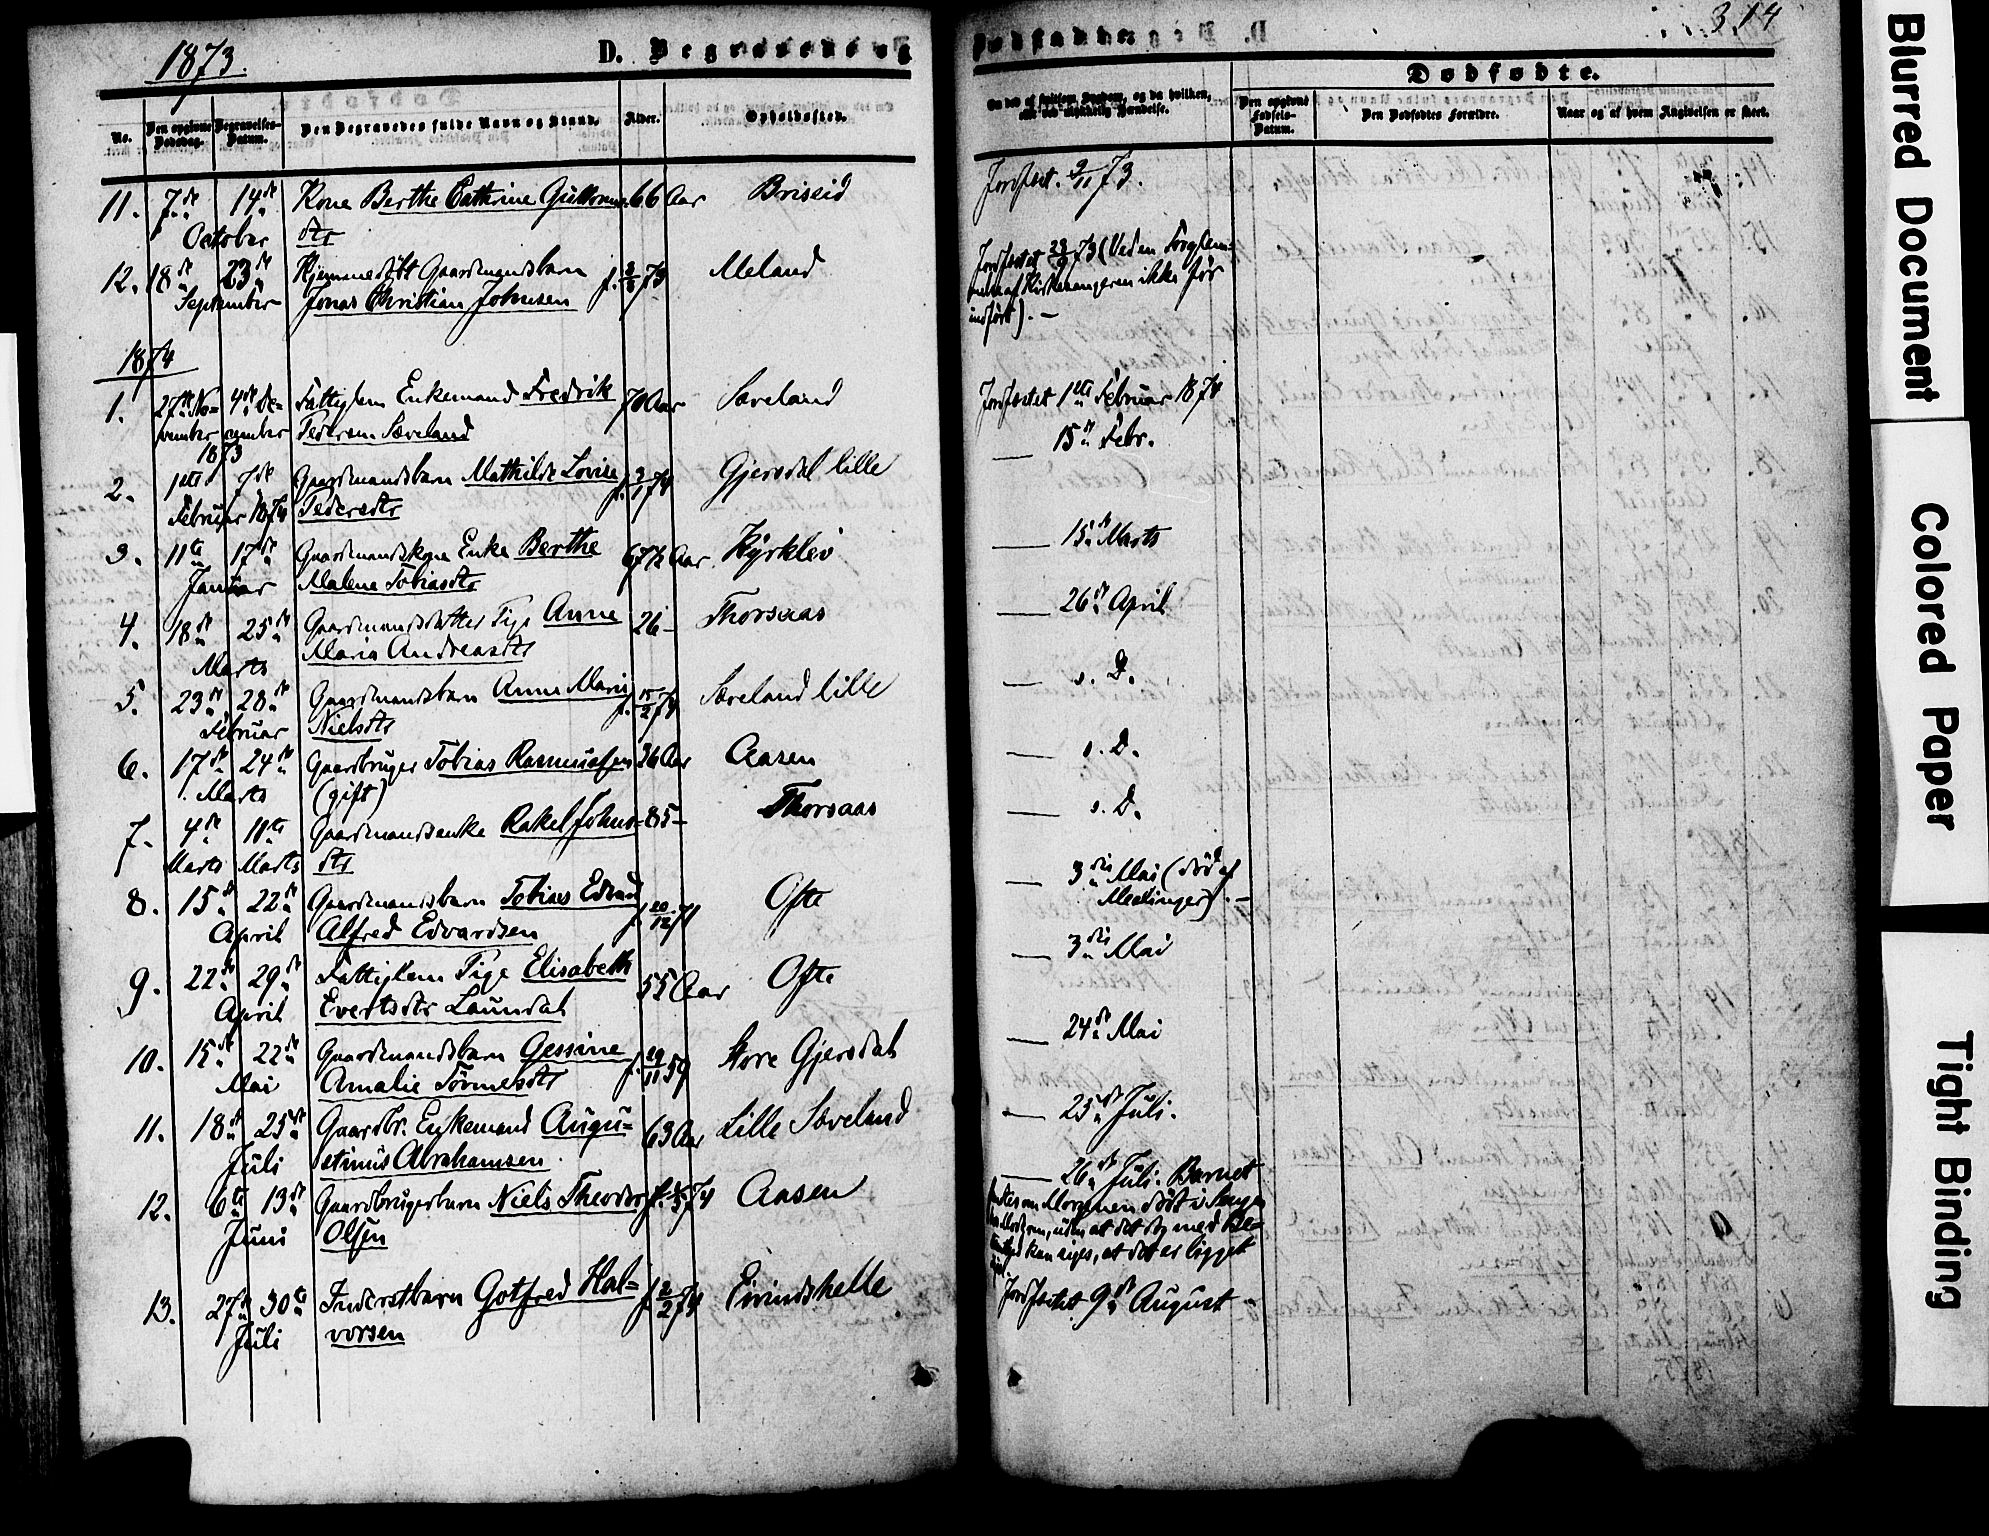 1873.
D. Begravede og
Dødfødte.
314
No.
Den opgivne Dødsdag.
Begravelses-Datum.
Den Begravedes fulde Navn og Stand.
Alder.
Opholdssted.
Dødfødte.
Den opgivne Fødsels-Datum.
Den Dødfødtes Forældre.
Naar og af hvem Angivelsen er skeet.
11. 7de 14de Kone Berthe Cathrine Guttorms- 66 Aar Briseid Jordfæst. 9/11 73.
October dtr
12. 18de 23de Hjemmedøbt Gaardmandsbarn f. 73 Meland Jordfæstet 73 (Ved en Forglem-
September Jonas Christian Johnsen melse af Kirkesangeren ikke før
indført). -
1874
1. 27de No- 4de De- Fattiglem Enkemand Fredrik 70 Aar Sæveland Jordfæstet 1ste Februar 1874
vember cember Pedersen Sæveland
1873
2. 1ste 7de Gaardmandsbarn Mathilde Lovise f. 2/1 74 Gjersdal lille — 15de Febr.
Februar 1874 Pedersdtr
3. 11te 17de Gaardmandskone Enke Berthe 67½ Aar Kyrklev — 15de Marts
Januar Malene Tobiasdtr
4. 18de 25de Gaardmandsdatter Pige Anne 26 - Thorsaas — 26de April
Marts Maria Andreasdtr
5. 23de 28de Gaardmandsbarn Anne Marie f. 15/2 74 Sæveland lille — s. D.
Februar Nielsdtr
6. 17de 24de Gaardbruger Tobias Rasmussen 36 Aar Aasen — s. D.
Marts (gift)
7. 4de 11te Gaardmandsenke Rakel Johns- 85 - Thorsaas — s. D.
Marts Marts dtr
8. 15de 22de Gaardmandsbarn Tobias Edvard f. 20/12 71 Ofte — 3die Mai (død af
April Alfred Edvardsen Meslinger). -
9. 22de 29de Fattiglem Pige Elisabeth 55 Aar Ofte — 3die Mai
April Evertsdtr Laundal
10. 15de 22de Gaardmandsbarn Gessine f. 29/11 59 Store Gjersdal — 24de Mai
Mai Amalie Tønnesdtr
11. 18de 25de Gaardbr. Enkemand Augu- 63 Aar Lille Sæveland — 25de Juli.
Juli stinus Abrahamsen.
12. 6te 13de Gaardbrugerbarn Niels Theodor f. 74 Aasen — 26de Juli. Barnet
Juni Olsen fandtes om Morgenen dødt i Sengen
hos Moderen, uden at det dog med Be-
kan siges, at det er ligget
13. 27de 30te Inderstbarn Gotfred Hal- f. 2/2 74 Eivindshelle Jordfæstet 9de August -
Juli vorsen
Blurred Document
Colored Paper
Tight Binding